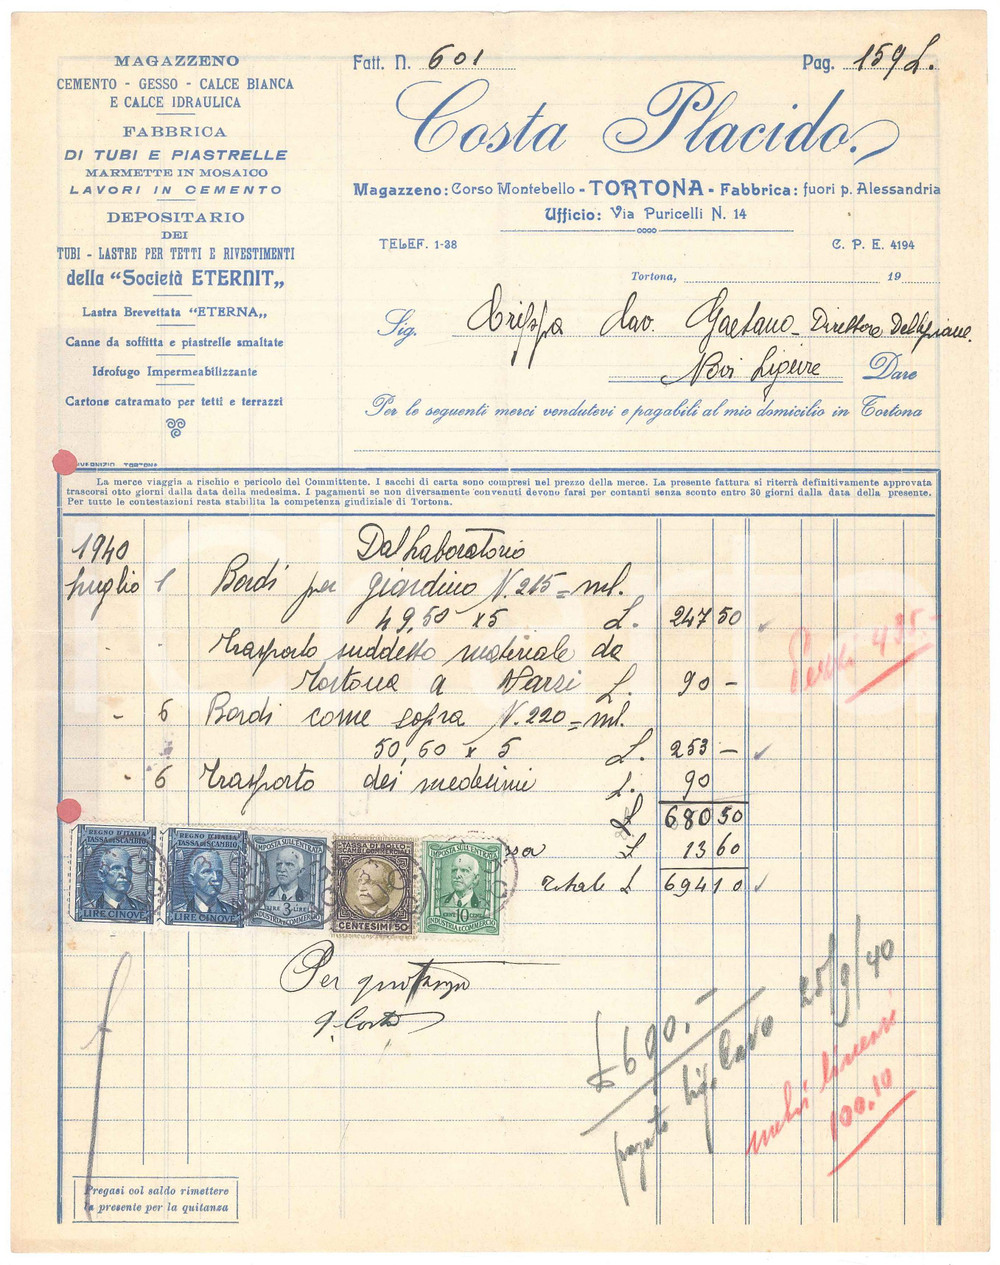 MAGAZZENO
CEMENTO - GESSO - CALCE BIANCA
E CALCE IDRAULICA
FABBRICA
DI TUBI E PIASTRELLE
MARMETTE IN MOSAICO
LAVORI IN CEMENTO
DEPOSITARIO
DEI
TUBI - LASTRE PER TETTI E RIVESTIMENTI
della “Società ETERNIT„
Lastra Brevettata “ETERNA„
Canne da soffitta e piastrelle smaltate
Idrofugo Impermeabilizzante
Cartone catramato per tetti e terrazzi
Fatt. N. 601
Pag. 159 L.
Costa Placido.
Magazzeno: Corso Montebello - TORTONA - Fabbrica: fuori p. Alessandria
Ufficio: Via Puricelli N. 14
TELEF. 1-38
C. P. E. 4194
Tortona, 19
Sig. Crippa Cav. Gaetano - Direttore Dellepiane.
Novi Ligure Dare
Per le seguenti merci vendutevi e pagabili al mio domicilio in Tortona
TORTONA
La merce viaggia a rischio e pericolo del Committente. I sacchi di carta sono compresi nel prezzo della merce. La presente fattura si riterrà definitivamente approvata
trascorsi otto giorni dalla data della medesima. I pagamenti se non diversamente convenuti devono farsi per contanti senza sconto entro 30 giorni dalla data della presente.
Per tutte le contestazioni resta stabilita la competenza giudiziale di Tortona.
1940 Dal Laboratorio
Luglio 1 Bordi per giardino N. 215 = ml.
49,50 x 5 L. 247 50
- - Trasporto suddetto materiale da
Tortona a Varzi L. 90 -
- 6 Bordi come sopra N. 220 = ml.
50,60 x 5 L. 253 -
- 6 Trasporto dei medesimi L. 90
L 680 50
ssa L 13 60
Totale L 694 10
Pezzi 435.-
REGNO D'ITALIA
TASSA DI SCAMBIO
LIRE CINQUE
REGNO D'ITALIA
TASSA DI SCAMBIO
LIRE CINQUE
IMPOSTA SULL'ENTRATA
LIRE 3 LIRE
INDUSTRIA E COMMERCIO
TASSA DI BOLLO
CENTESIMI 50
IMPOSTA SULL'ENTRATA
CENT. 10 CENT.
INDUSTRIA E COMMERCIO
Per quietanza
Costa
£ 690.-
pagato 25/9/40
metri lineari
100.10
Pregasi col saldo rimettere
la presente per la quitanza